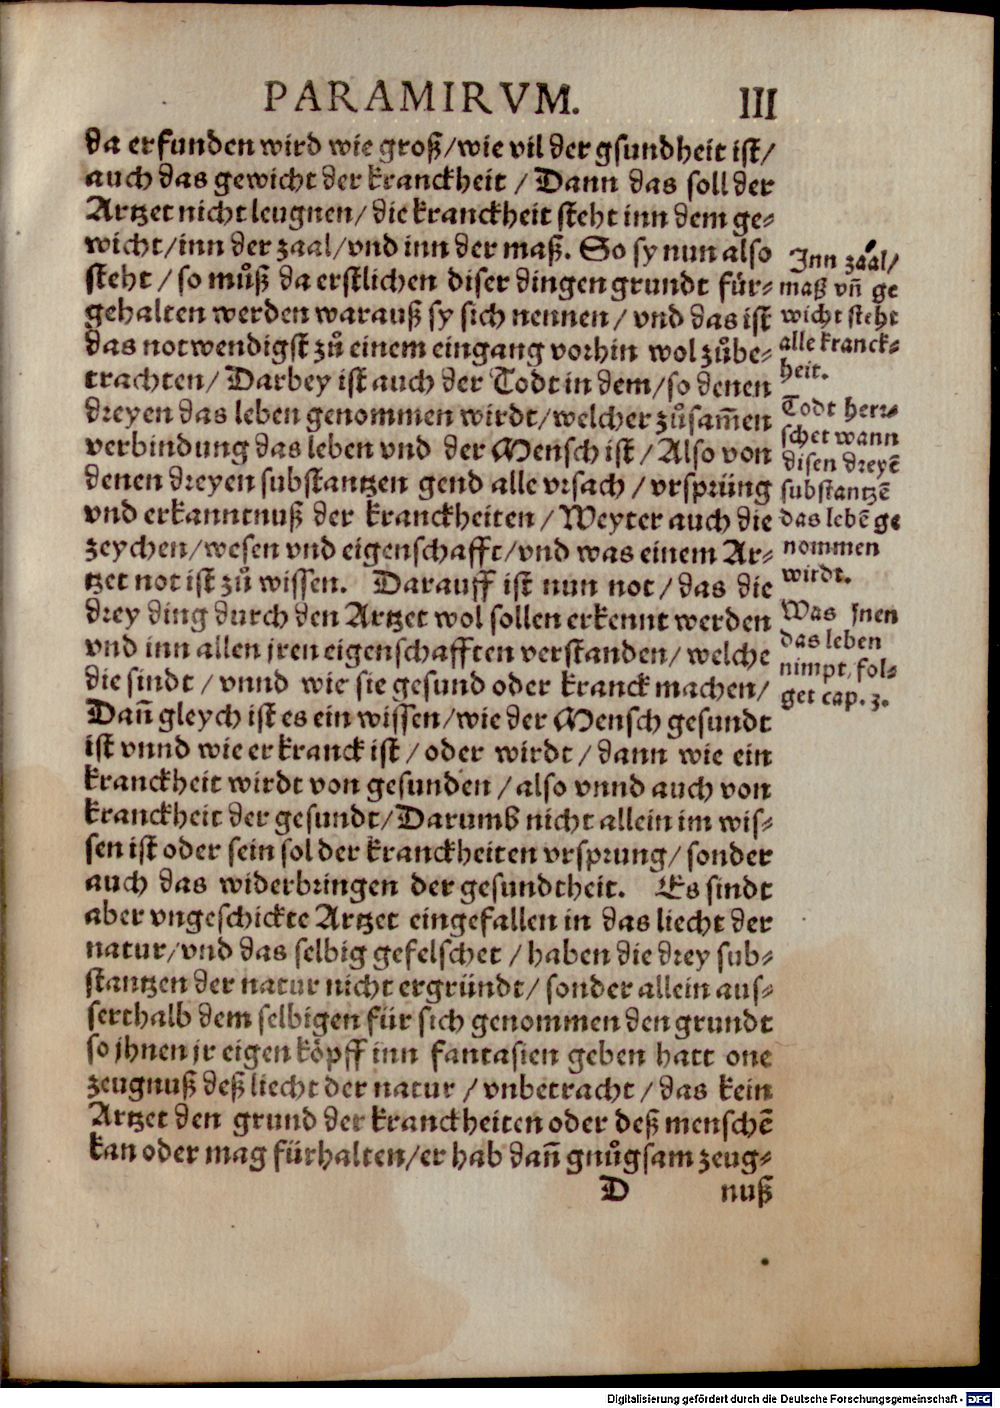 PARAMIRVM. III
da erfunden wird wie groß/wie vil der gsundheit ist/
auch das gewicht der kranckheit / Dann das soll der
Artzet nicht leugnen/ die kranckheit steht inn dem ge-
wicht/inn der zaal/vnd inn der maß. So sy nun also
steht / so můß da erstlichen diser dingen grundt für-
gehalten werden warauß sy sich nennen / vnd das ist
das notwendigst zů einem eingang vorhin wol zůbe-
trachten/ Darbey ist auch der Todt in dem/so denen
dreyen das leben genommen wirdt/welcher zůsam̃en
verbindung das leben vnd der Mensch ist / Also von
denen dreyen substantzen gend alle vrsach / vrsprüng
vnd erkanntnuß der kranckheiten / Weyter auch die
zeychen/wesen vnd eigenschafft/vnd was einem Ar-
tzet not ist zů wissen. Darauff ist nun not / das die
drey ding durch den Artzet wol sollen erkennt werden
vnd inn allen jren eigenschafften verstanden/ welche
die sindt / vnnd wie sie gesund oder kranck machen/
Dañ gleych ist es ein wissen/wie der Mensch gesundt
ist vnnd wie er kranck ist / oder wirdt / dann wie ein
kranckheit wirdt von gesunden / also vnnd auch von
kranckheit der gesundt/Darumb nicht allein im wis-
sen ist oder sein sol der kranckheiten vrsprung/ sonder
auch das widerbringen der gesundtheit. Es sindt
aber vngeschickte Artzet eingefallen in das liecht der
natur/vnd das selbig gefelschet / haben die drey sub-
stantzen der natur nicht ergründt/ sonder allein aus-
serthalb dem selbigen für sich genommen den grundt
so jhnen jr eigen köpff inn fantasien geben hatt one
zeugnuß deß liecht der natur / vnbetracht / das kein
Artzet den grund der kranckheiten oder deß menschē
kan oder mag fürhalten/er hab dañ gnůgsam zeug-
D nuß
Inn zaal/
maß vñ ge
wicht steht
alle kranck-
heit.
Todt herr-
schet wann
disen dreyē
substantzē
das lebē ge
nommen
wirdt.
Was jnen
das leben
nimpt, fol-
get cap. 3.
Digitalisierung gefördert durch die Deutsche Forschungsgemeinschaft - DFG